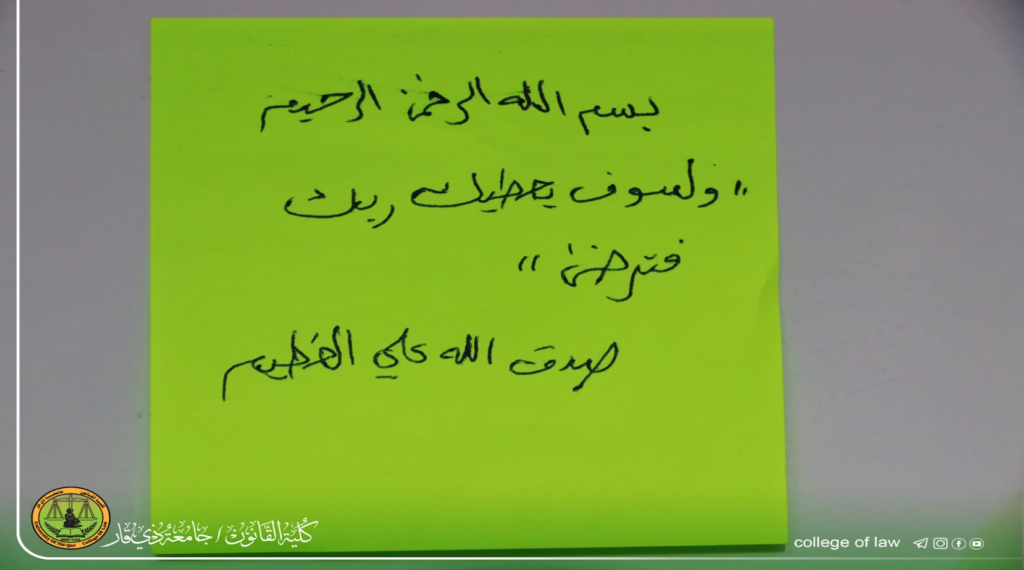 بسم الله الرحمن الرحيم
"ولسوف يعطيك ربك
فترضى"
صدق الله علي العظيم
كلية القانون / جامعة ذي قار
college of law